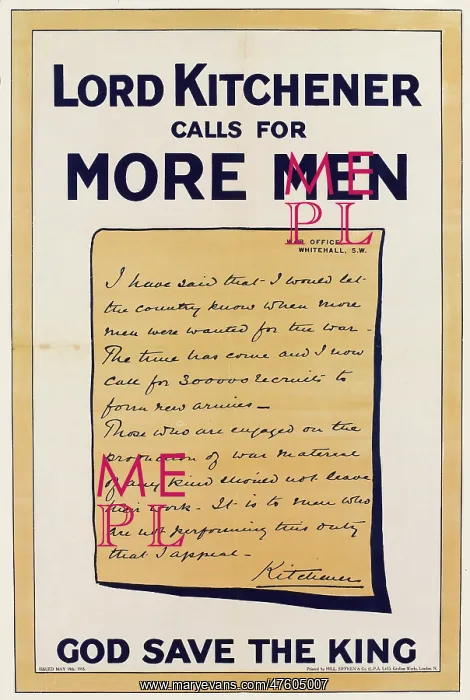 LORD KITCHENER
CALLS FOR
MORE MEN
ME
PL
WAR OFFICE
WHITEHALL, S.W.
I have said that I would let
the country know when more
men were wanted for the war –
The time has come and I now
call for 300000 recruits to
form new armies –
Those who are engaged on the
production of war material
of any kind should not leave
their work – It is to men who
are not performing this duty
that I appeal –
ME
PL
Kitchener
GOD SAVE THE KING
ISSUED MAY 19th, 1915.
www.maryevans.com/47605007